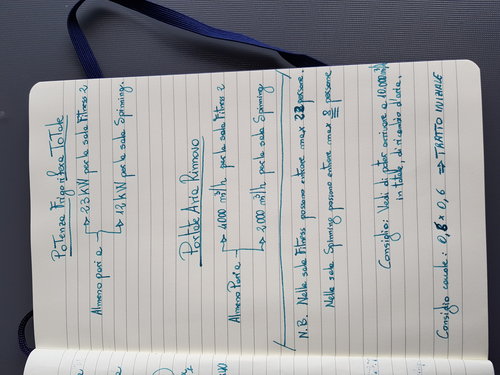 Potenza Frigorifera Totale
Almeno pari a
→ 23 kW per la sala Fitness 2
→ 12 kW per la sala Spinning.
Portate Aria Rinnovo
Almeno Pari a
→ 4000 m³/h per la sala Fitness 2
→ 2000 m³/h per la sala Spinning
N.B. Nella sala Fitness possono entrare max 22 persone.
Nella sala Spinning possono entrare max 8 persone
Consiglio: Vedi di poter arrivare a 10.000 m³/h
in totale, di ricambio d'aria.
Consiglio canale: 0,6 x 0,6 ⇒ TRATTO INIZIALE